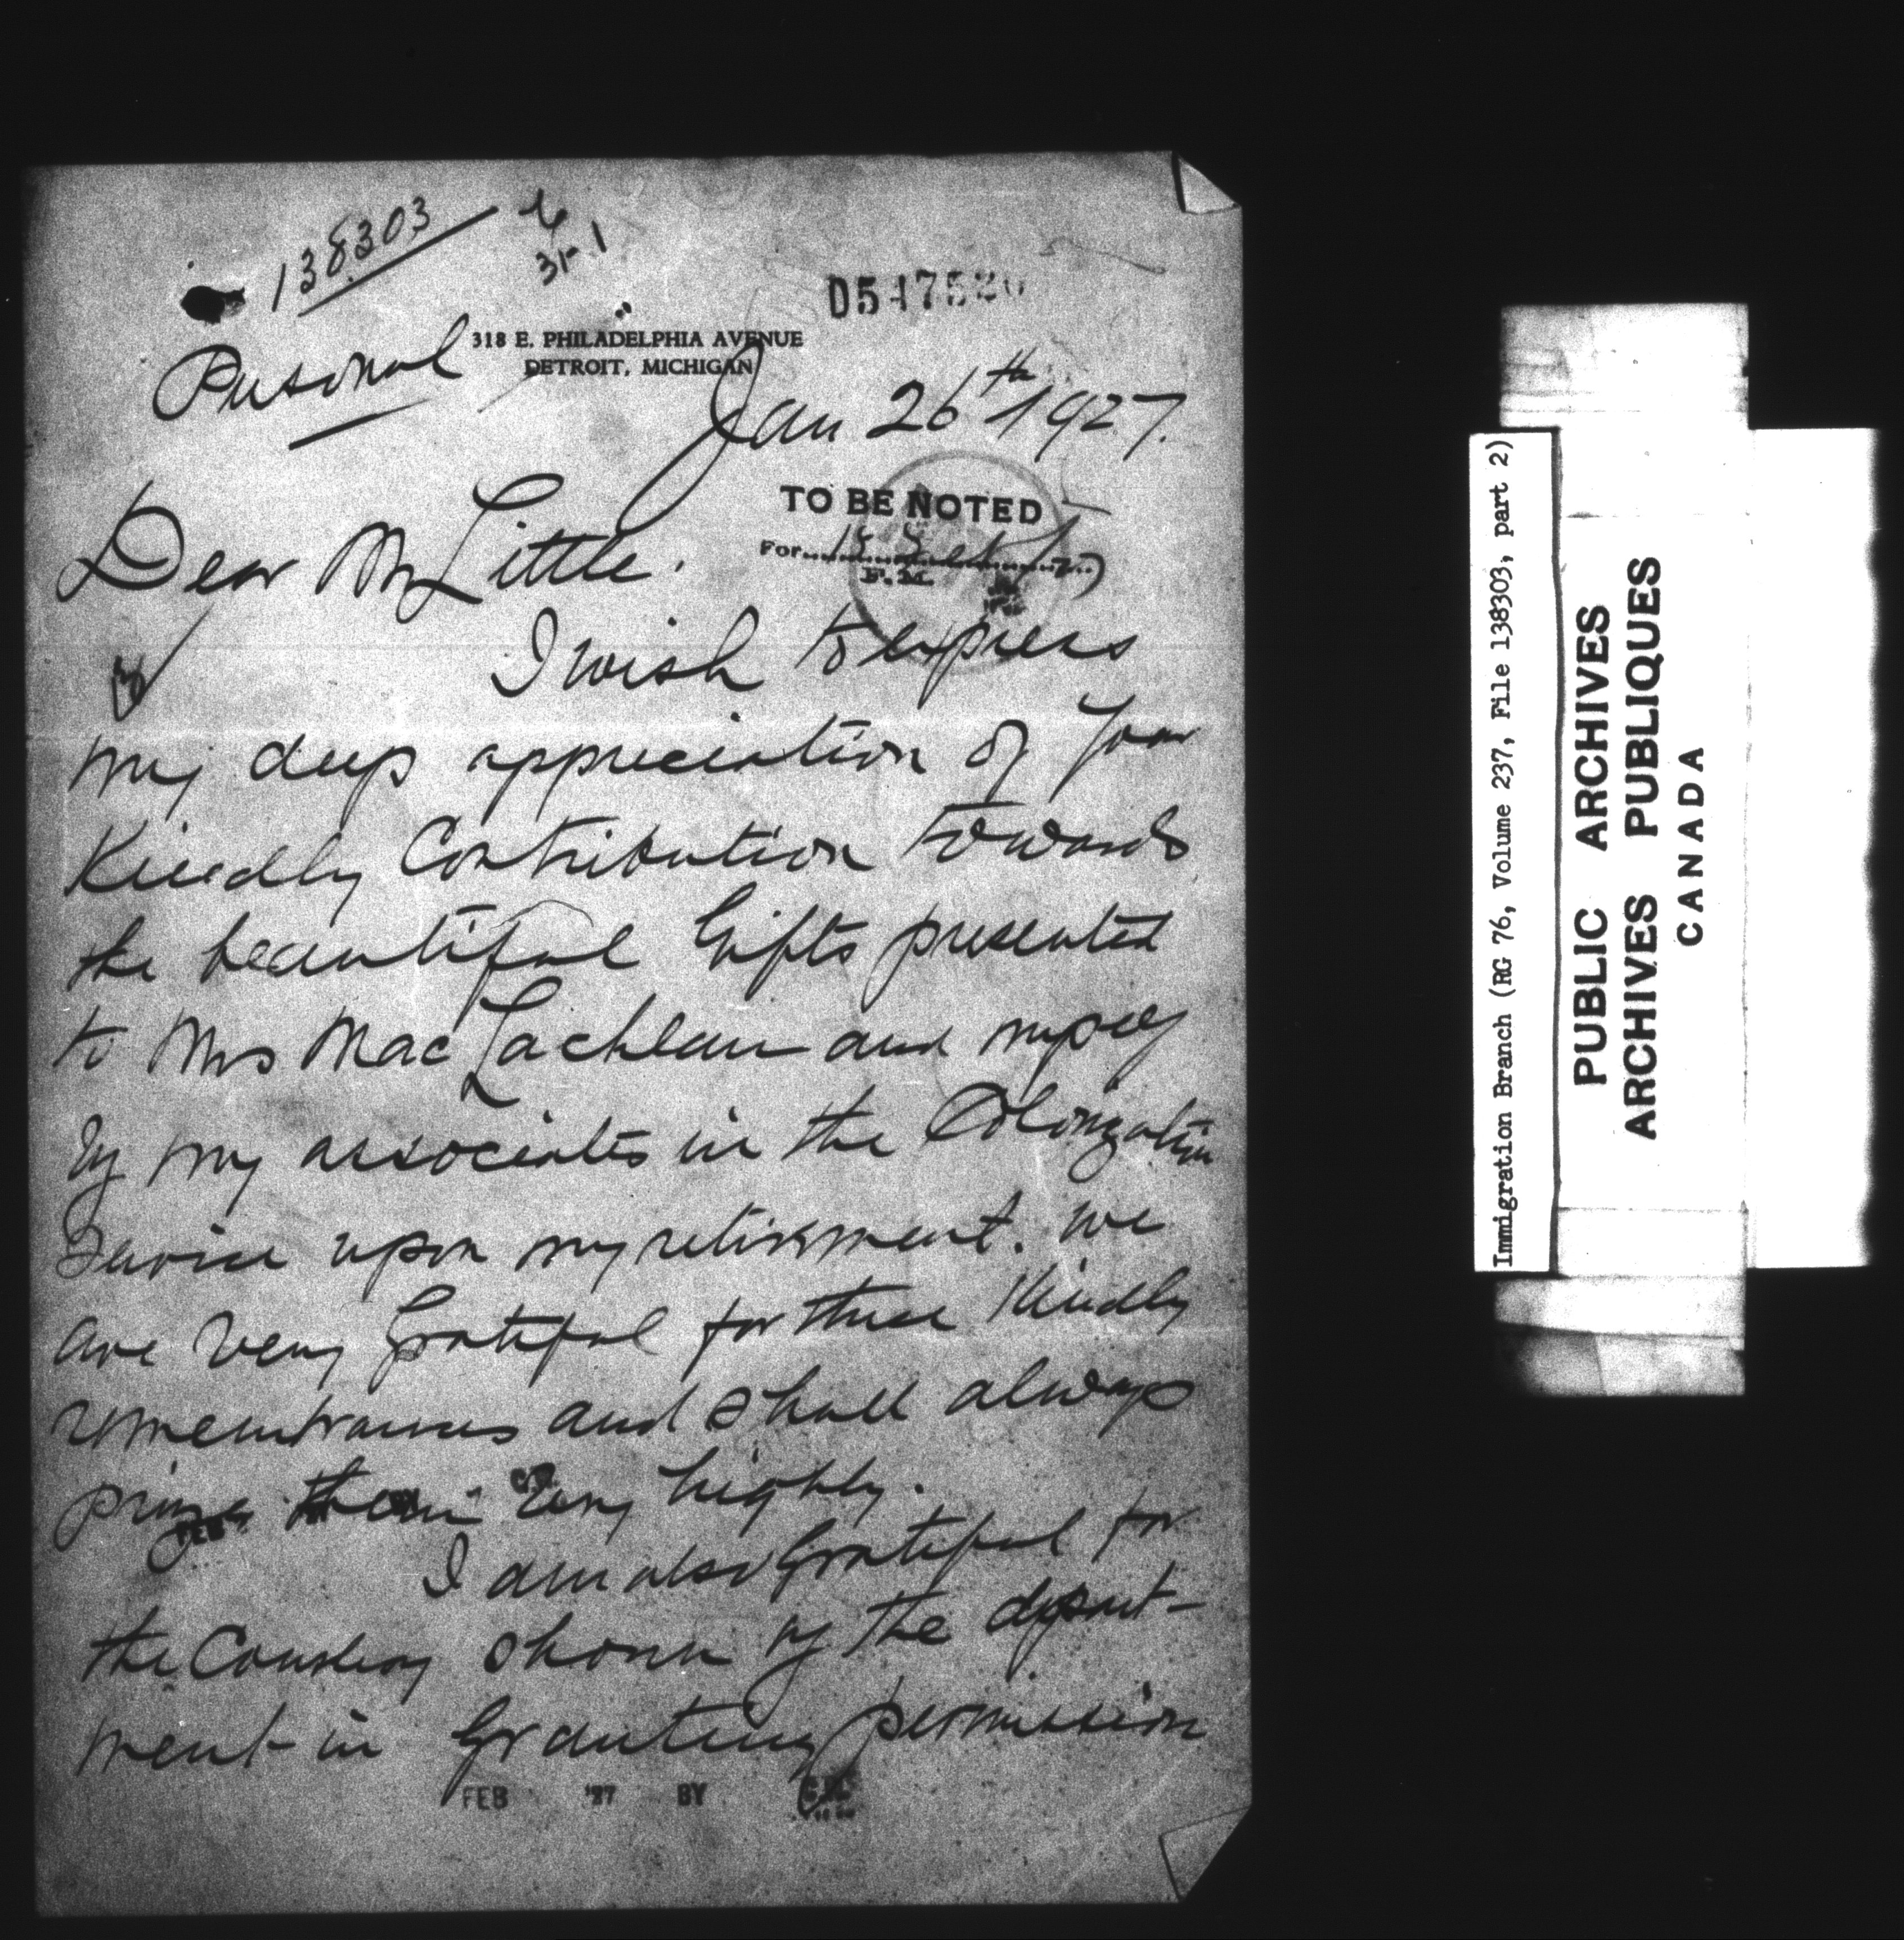 138303
31-1
D547520
Personal
318 E. PHILADELPHIA AVENUE
DETROIT, MICHIGAN
Jan 26th 1927.
TO BE NOTED
For
F. M.
Dear Mr Little.
I wish to express
my deep appreciation of your
Kindly Contribution towards
the beautiful Gifts presented
to Mrs MacLachlan and myself
by my associates in the Colonization
Service upon my retirement. We
are very Grateful for these Kindly
remembrances and shall always
prize them very highly.
I am also Grateful for
the Courtesy shown by the depart-
ment in Granting permission
FEB '27 BY
Immigration Branch (RG 76, Volume 237, File 138303, part 2)
PUBLIC ARCHIVES
ARCHIVES PUBLIQUES
CANADA